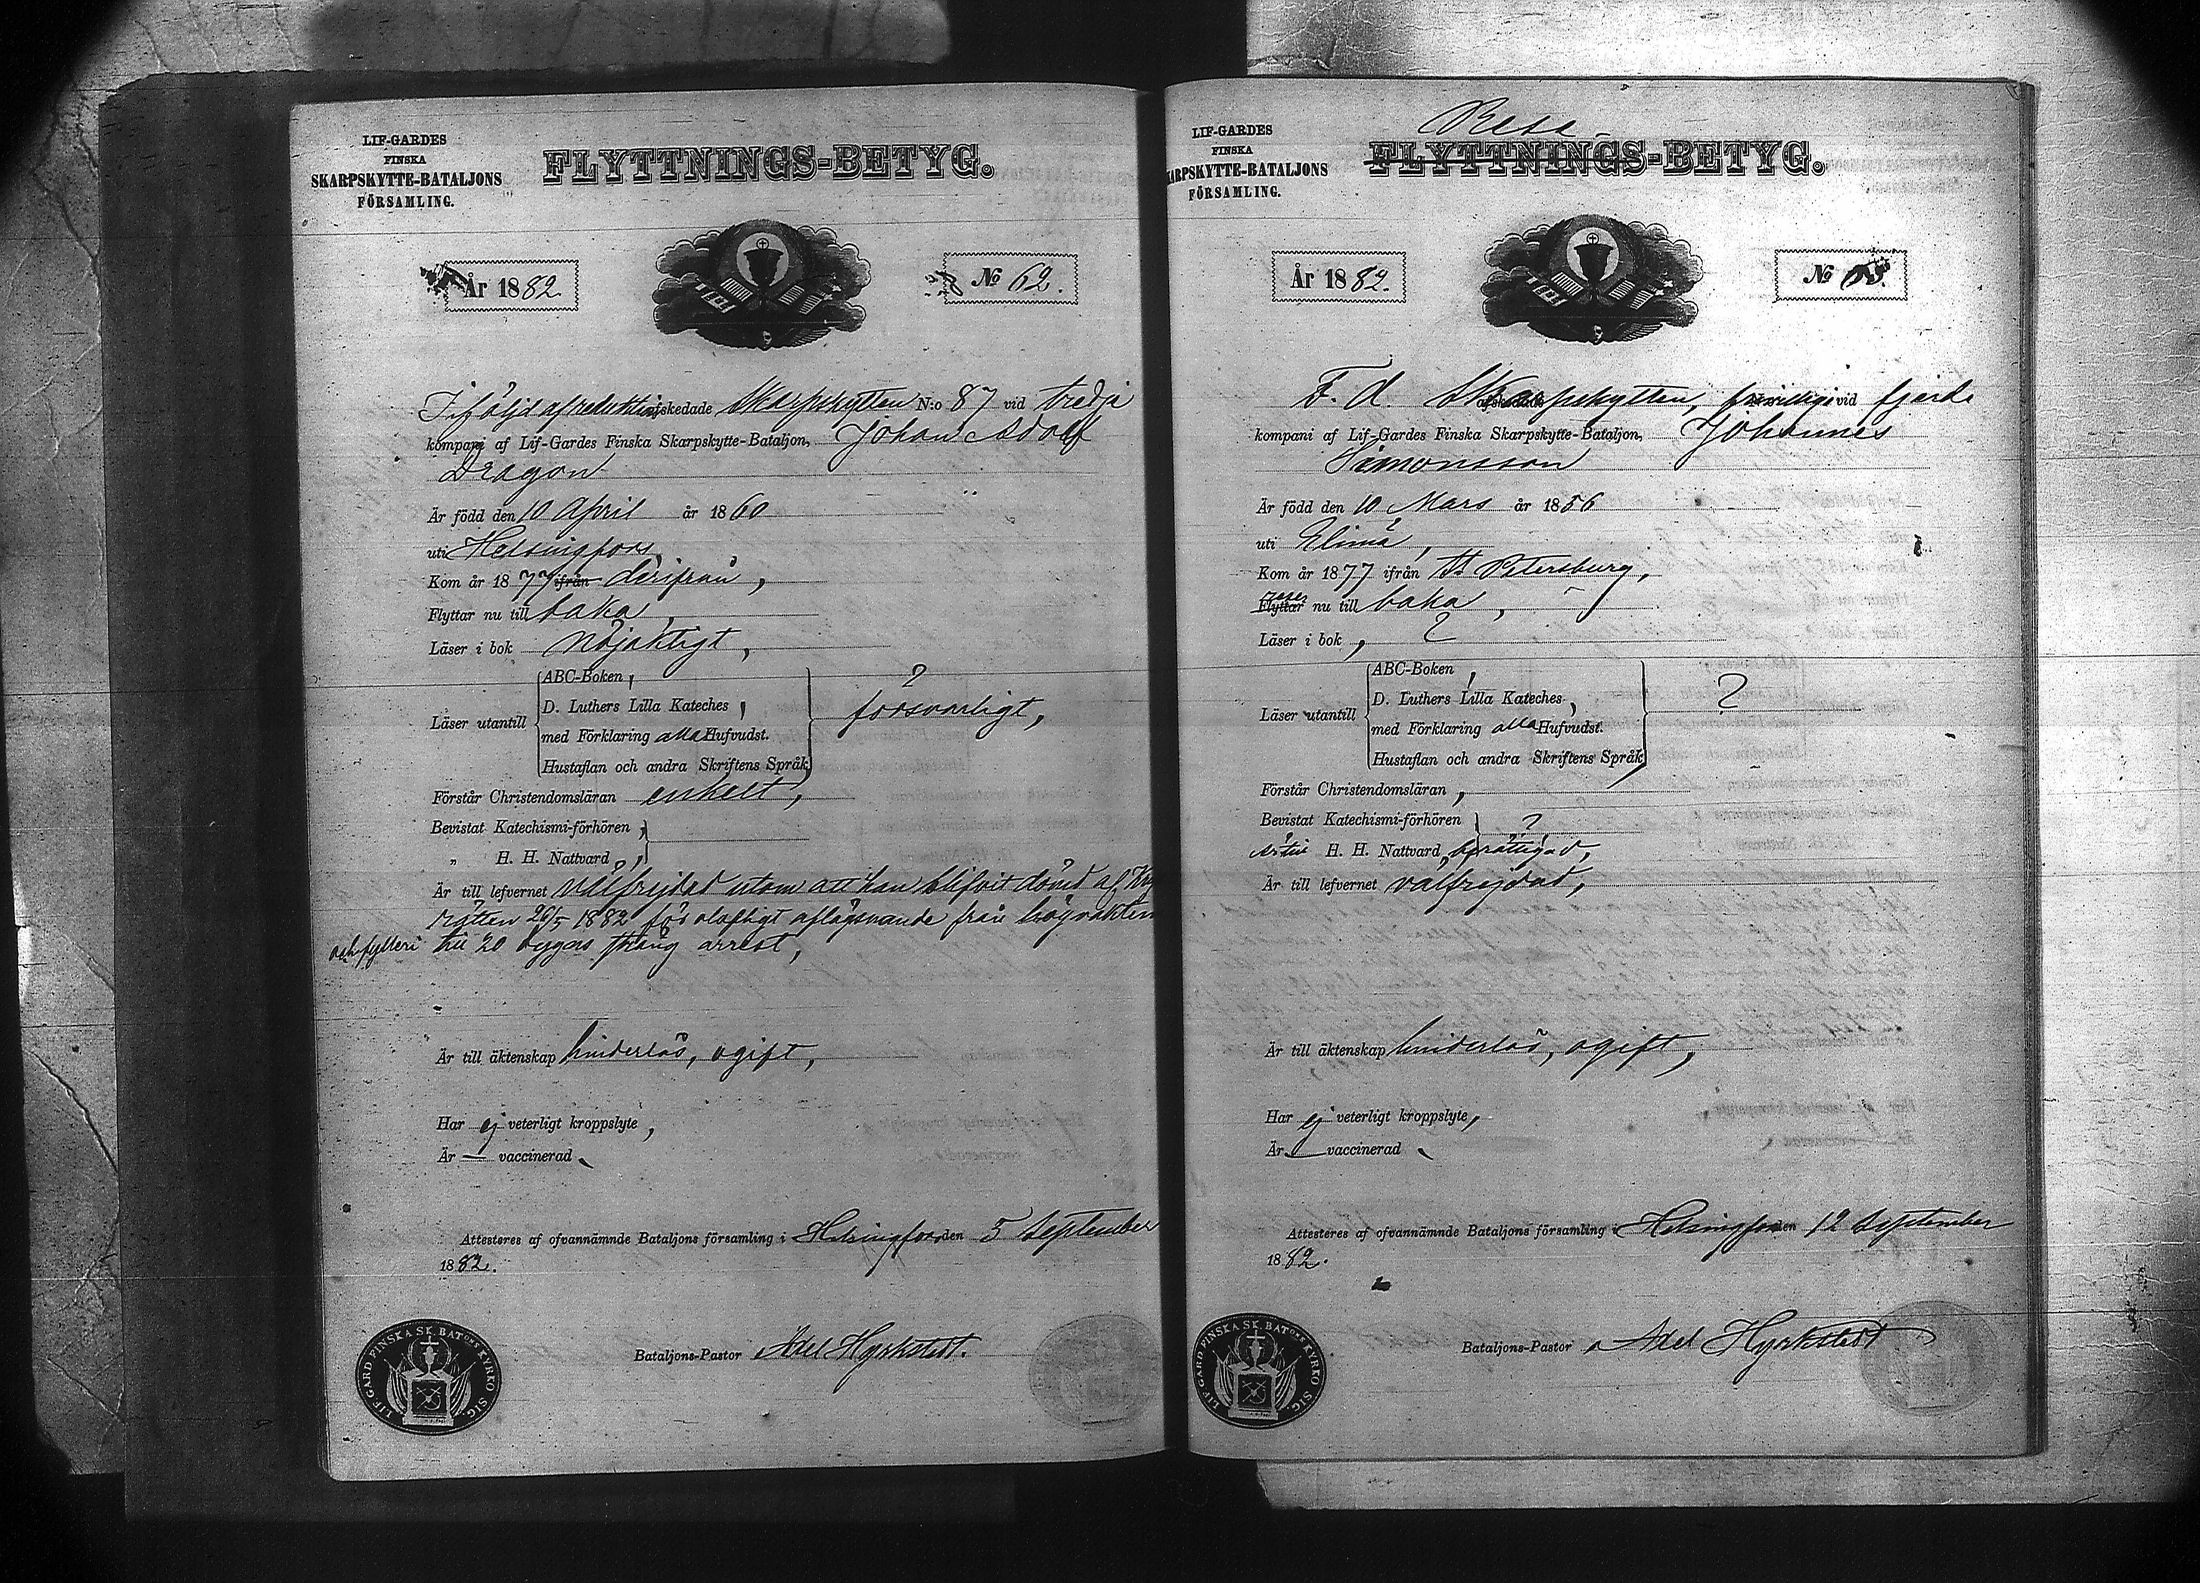 LIF-GARDES
FINSKA
SKARPSKYTTE-BATALJONS
FÖRSAMLING.
FLYTTNINGS-BETYG.
År 1882.
No 62.
I följd af reduktion afskedade Skarpskytten N:o 87 vid tredje
kompani af Lif-Gardes Finska Skarpskytte-Bataljon, Johan Adolf
Dragon
Är född den 10 April år 1860
uti Helsingfors,
Kom år 1877 ifrån derifrån,
Flyttar nu till baka,
Läser i bok nöjaktigt,
Läser utantill
ABC-Boken,
D. Luthers Lilla Kateches,
med Förklaring alla Hufvudst.
Hustaflan och andra Skriftens Språk,
?
försvarligt,
Förstår Christendomsläran enkelt,
Bevistat Katechismi-förhören,
„ H. H. Nattvard,
Är till lefvernet välfrejdad utom att han blifvit dömd af
rätten 26/5 1882 för olofligt aflägsnande från högvakten
och fylleri till 20 dygns sträng arrest,
Är till äktenskap hinderlös, ogift,
Har ej veterligt kroppslyte,
Är — vaccinerad
Attesteres af ofvannämnde Bataljons församling i Helsingfors den 5 September
1882.
LIF GARD FINSKA SK. BATONS KYRKO SIG.
Bataljons-Pastor Axel Hyrkstedt.
LIF-GARDES
FINSKA
KARPSKYTTE-BATALJONS
FÖRSAMLING.
Rese-
FLYTTNINGS-BETYG.
År 1882.
No
F. d. afskedade Skarpskytten, frivillige vid fjerde
kompani af Lif-Gardes Finska Skarpskytte-Bataljon, Johannes
Simonsson
Är född den 10 Mars år 1856
uti Elimä,
Kom år 1877 ifrån St Petersburg,
reser
Flyttar nu till baka,
Läser i bok, ?
Läser utantill
ABC-Boken,
D. Luthers Lilla Kateches,
med Förklaring alla Hufvudst.
Hustaflan och andra Skriftens Språk,
?
Förstår Christendomsläran,
Bevistat Katechismi-förhören ?
Är till H. H. Nattvard, berättigad,
Är till lefvernet välfrejdad,
Är till äktenskap hinderlös, ogift,
Har ej veterligt kroppslyte,
Är — vaccinerad
Attesteres af ofvannämnde Bataljons församling i Helsingfors den 12 September
1882.
LIF GARD FINSKA SK. BATONS KYRKO SIG.
Bataljons-Pastor Axel Hyrkstedt